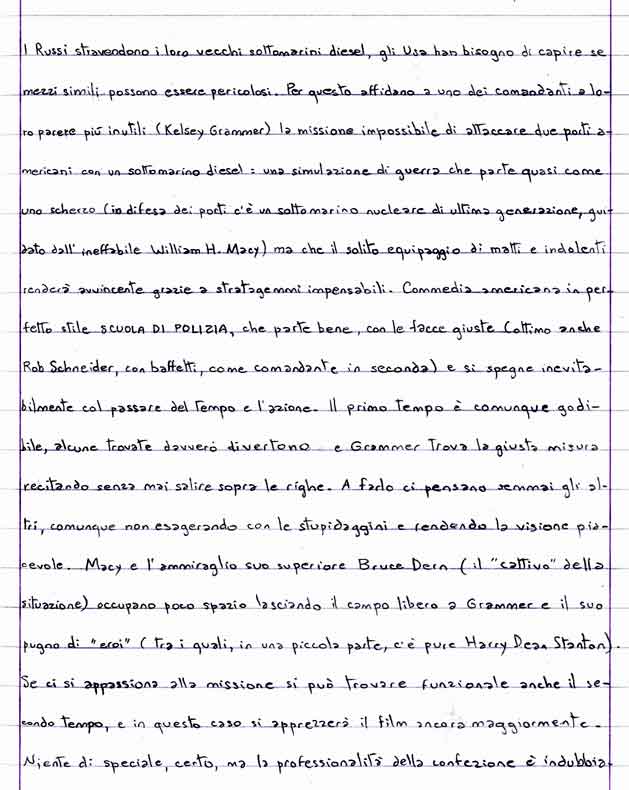 I Russi stravendono i loro vecchi sottomarini diesel, gli Usa han bisogno di capire se
mezzi simili possono essere pericolosi. Per questo affidano a uno dei comandanti a lo-
ro parere più inutili (Kelsey Grammer) la missione impossibile di attaccare due porti a-
mericani con un sottomarino diesel: una simulazione di guerra che parte quasi come
uno scherzo (in difesa dei porti c'è un sottomarino nucleare di ultima generazione, gui-
dato dall'ineffabile William H. Macy) ma che il solito equipaggio di matti e indolenti
renderà avvincente grazie a stratagemmi impensabili. Commedia americana in per-
fetto stile SCUOLA DI POLIZIA, che parte bene, con le facce giuste (ottimo anche
Rob Schneider, con baffetti, come comandante in seconda) e si spegne inevita-
bilmente col passare del tempo e l'azione. Il primo tempo è comunque godi-
bile, alcune trovate davvero divertono e Grammer trova la giusta misura
recitando senza mai salire sopra le righe. A farlo ci pensano semmai gli al-
tri, comunque non esagerando con le stupidaggini e rendendo la visione pia-
cevole. Macy e l'ammiraglio suo superiore Bruce Dern (il "cattivo" della
situazione) occupano poco spazio lasciando il campo libero a Grammer e il suo
pugno di "eroi" (tra i quali, in una piccola parte, c'è pure Harry Dean Stanton).
Se ci si appassiona alla missione si può trovare funzionale anche il se-
condo tempo, e in questo caso si apprezzerà il film ancora maggiormente.
Niente di speciale, certo, ma la professionalità della confezione è indubbia.